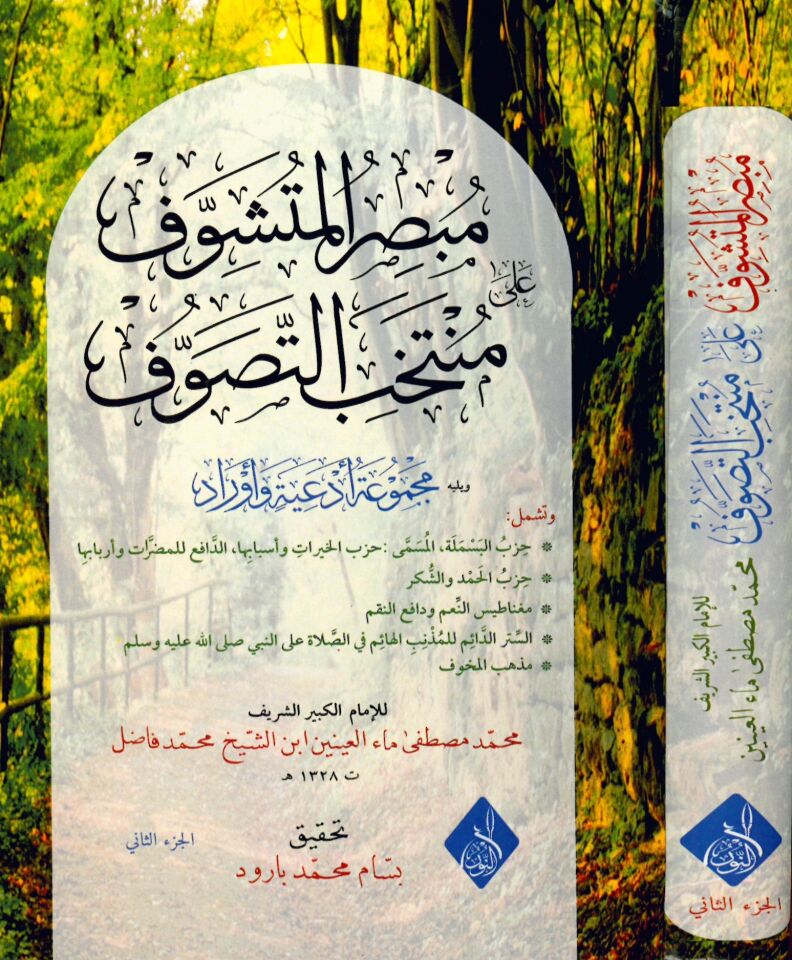 مُبْصِرُ المُتَشَوِّف
عَلَى
مُنْتَخَبِ التَّصَوُّف
ويليه مَجْمُوعَةُ أَدْعِيَةٍ وَأَوْرَاد
وتشمل:
* حِزبُ البَسْمَلَة، المُسَمَّى: حزب الخيراتِ وأسبابِها، الدَّافع للمضرَّات وأربابِها
* حِزبُ الحَمْد والشُّكر
* مغناطيس النِّعم ودافع النقم
* السِّتر الدَّائم للمُذْنِبِ الهائِم في الصَّلاة على النبي صلى الله عليه وسلم
* مذهب المخوف
للإمام الكبير الشريف
محمّد مصطفىٰ ماء العينين ابن الشّيخ محمّد فاضل
ت ١٣٢٨ هـ
تحقيق
بسّام محمّد بارود
الجزء الثاني
النّور
مُبْصِرُ المُتَشَوِّف
عَلَى مُنْتَخَبِ التَّصَوُّف
للإمام الكبير الشريف
محمّد مصطفىٰ ماء العينين
النّور
الجزء الثاني